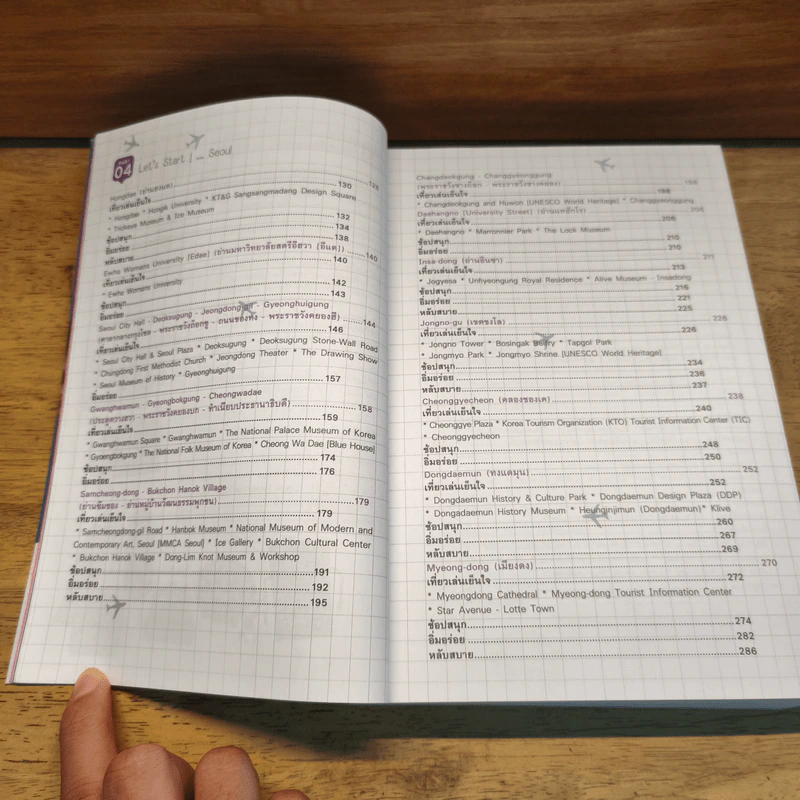 PART
04
Let's Start | ... Seoul
Hongdae (ย่านฮงแด) 128
เที่ยวเล่นเย็นใจ 130
* Hongdae * Hongik University * KT&G Sangsangmadang Design Square
* Trickeye Museum & Ice Museum
ช้อปสนุก 132
อิ่มอร่อย 134
หลับสบาย 138
Ewha Womans University [Edae] (ย่านมหาวิทยาลัยสตรีอีฮวา [อีแด]) 140
เที่ยวเล่นเย็นใจ 140
* Ewha Womans University
ช้อปสนุก 142
อิ่มอร่อย 143
Seoul City Hall - Deoksugung - Jeongdong-gil - Gyeonghuigung
(ศาลากลางกรุงโซล - พระราชวังถ็อกซู - ถนนชองดง - พระราชวังคยองฮี) 144
เที่ยวเล่นเย็นใจ 146
* Seoul City Hall & Seoul Plaza * Deoksugung * Deoksugung Stone-Wall Road
* Chungdong First Methodist Church * Jeongdong Theater * The Drawing Show
* Seoul Museum of History * Gyeonghuigung
อิ่มอร่อย 157
Gwanghwamun - Gyeongbokgung - Cheongwadae
(ประตูควางฮวา - พระราชวังคยองบก - ทำเนียบประธานาธิบดี) 158
เที่ยวเล่นเย็นใจ 159
* Gwanghwamun Square * Gwanghwamun * The National Palace Museum of Korea
* Gyeongbokgung * The National Folk Museum of Korea * Cheong Wa Dae [Blue House]
ช้อปสนุก 174
อิ่มอร่อย 176
Samcheong-dong - Bukchon Hanok Village
(ย่านซัมชอง - ย่านหมู่บ้านวัฒนธรรมพุกชน) 179
เที่ยวเล่นเย็นใจ 179
* Samcheongdong-gil Road * Hanbok Museum * National Museum of Modern and
Contemporary Art, Seoul [MMCA Seoul] * Ice Gallery * Bukchon Cultural Center
* Bukchon Hanok Village * Dong-Lim Knot Museum & Workshop
ช้อปสนุก 191
อิ่มอร่อย 192
หลับสบาย 195
Changdeokgung - Changgyeonggung
(พระราชวังชางด็อก - พระราชวังชางคยอง) 198
เที่ยวเล่นเย็นใจ 198
* Changdeokgung and Huwon [UNESCO World Heritage] * Changgyeonggung
Daehangno [University Street] (ย่านแทฮักโร) 206
เที่ยวเล่นเย็นใจ 206
* Daehangno * Marronnier Park * The Lock Museum
ช้อปสนุก 210
อิ่มอร่อย 210
Insa-dong (ย่านอินซา) 211
เที่ยวเล่นเย็นใจ 213
* Jogyesa * Unhyeongung Royal Residence * Alive Museum - Insadong
ช้อปสนุก 216
อิ่มอร่อย 221
หลับสบาย 225
Jongno-gu (เขตชงโล) 226
เที่ยวเล่นเย็นใจ 226
* Jongno Tower * Bosingak Belfry * Tapgol Park
* Jongmyo Park * Jongmyo Shrine [UNESCO World Heritage]
ช้อปสนุก 234
อิ่มอร่อย 236
หลับสบาย 237
Cheonggyecheon (คลองชองเค) 238
เที่ยวเล่นเย็นใจ 240
* Cheonggye Plaza * Korea Tourism Organization (KTO) Tourist Information Center (TIC)
* Cheonggyecheon
ช้อปสนุก 248
อิ่มอร่อย 250
Dongdaemun (ทงแดมุน) 252
เที่ยวเล่นเย็นใจ 252
* Dongdaemun History & Culture Park * Dongdaemun Design Plaza (DDP)
* Dongadaemun History Museum * Heunginjimun (Dongdaemun) * Klive
ช้อปสนุก 260
อิ่มอร่อย 267
หลับสบาย 269
Myeong-dong (เมียงดง) 270
เที่ยวเล่นเย็นใจ 272
* Myeongdong Cathedral * Myeong-dong Tourist Information Center
* Star Avenue - Lotte Town
ช้อปสนุก 274
อิ่มอร่อย 282
หลับสบาย 286